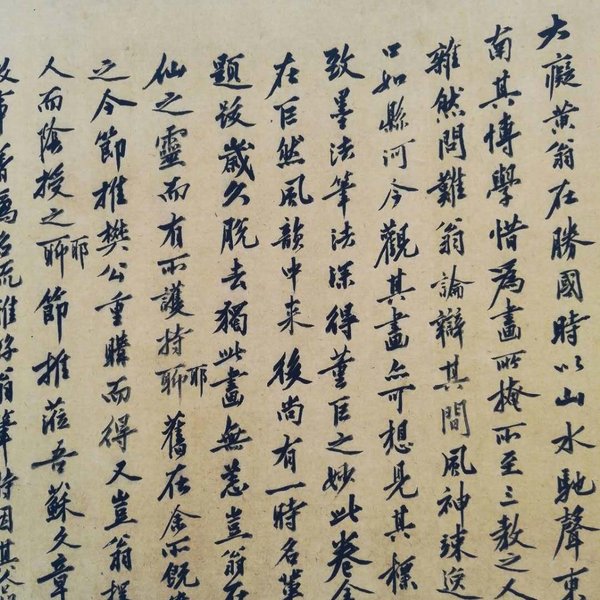 大癡黄翁在勝國時以山水馳聲東
南其博學惜為畫所掩所至三教之人
雜然問難翁論辯其間風神竦逸
口如縣河今觀其畫亦可想見其標
致墨法筆法深得董巨之妙此卷全
在巨然風韻中来後尚有一時名輩
題跋歲久脫去獨此畫無恙豈翁在
仙之靈而有所護持聊耶舊在余所既
之今節推樊公重購而得又豈翁擇
人而陰授之聊耶節推蒞吾蘇文章
政事著為名流雅好翁筆特因其人品